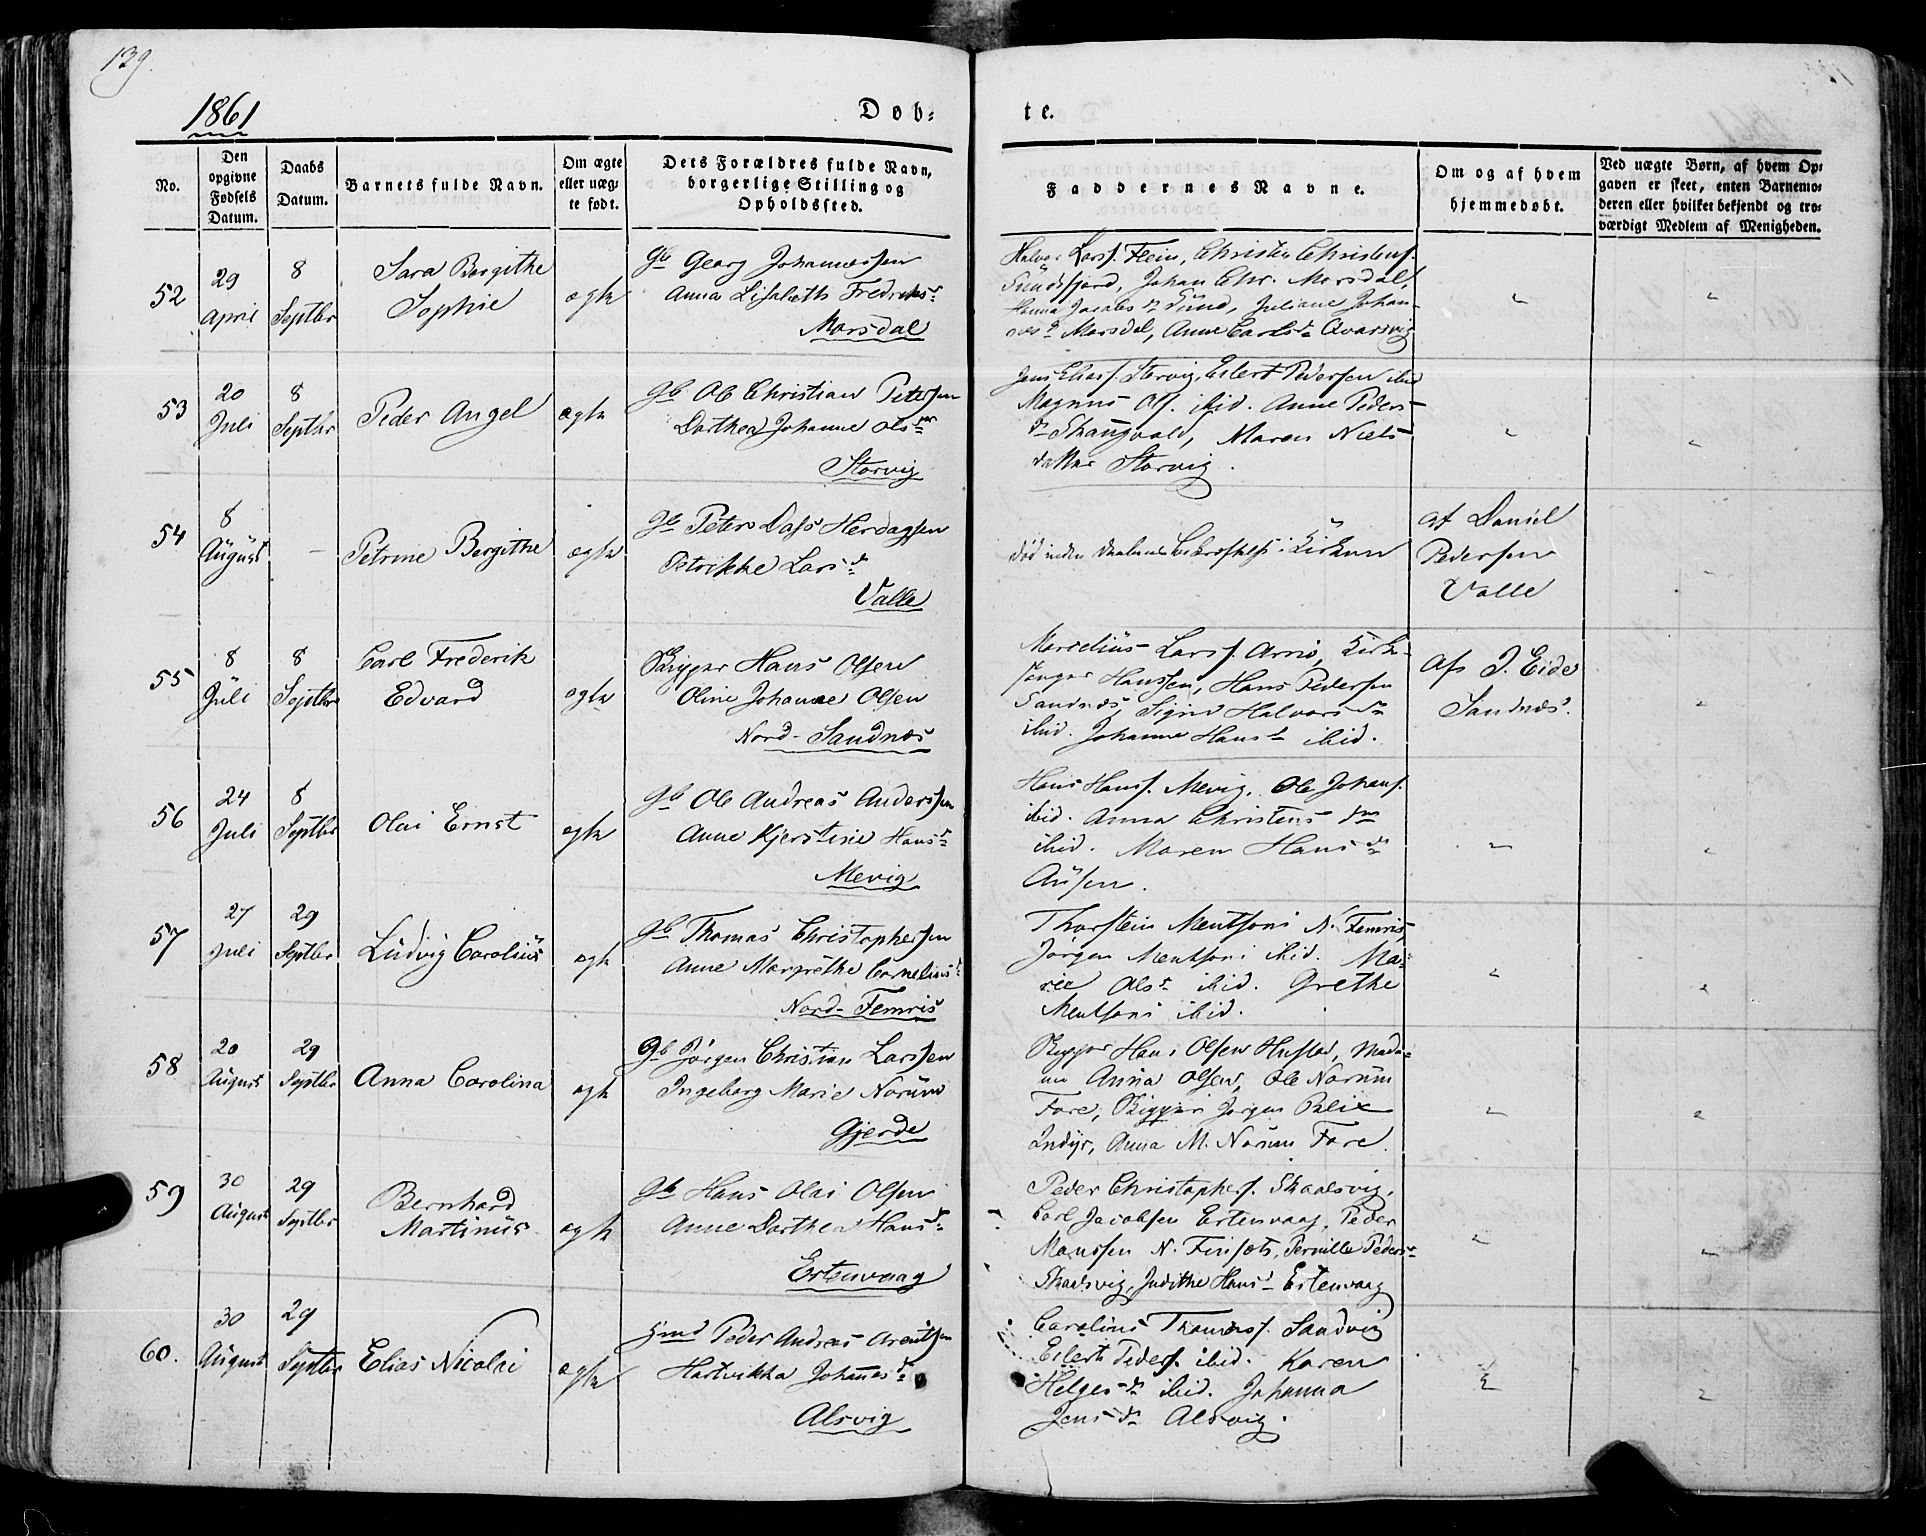 139.
1861
Døb-
te.
No.
Den opgivne Fødsels Datum.
Daabs Datum.
Barnets fulde Navn.
Om ægte eller uægte født.
Dets Forældres fulde Navn, borgerlige Stilling og Opholdssted.
Faddernes Navne.
Om og af hvem hjemmedøbt.
Ved uægte Børn, af hvem Opgaven er skeet, enten Barnemoderen eller hvilket bekjendt og troværdigt Medlem af Menigheden.
52
29 April
8 Septbr
Sara Bergithe
Sophie
ægte
Gb Georg Johannessen
Anna Lisabeth Fredriksd.
Marsdal
Halvor Larss. Flein, Christen Christens.
Sundsfjord, Johan Chr. Marsdal,
Hanna Jacobsd. Sund, Juliane Johan-
Marsdal, Anne Carlsd. Qvarsvig
"
"
53
20 Juli
8 Septbr
Peder Angel
ægte
Gb Ole Christian Petersen
Dorthea Johanne Olsdtr
Storvig
Jens Eliass. Storvig, Eilert Pedersen ibid
Magnus Ols. ibid. Anne Peders-
d. Skaugvold, Maren Niels-
datter Storvig.
"
"
54
8 August
-
Petrine Bergithe
ægte
Gb Peter Dass Herdagsen
Petrikke Larsd.
Valle
død inden Daabens Bekræftelse i Kirken
af Daniel
Pedersen
Valle
"
55
8 Juli
8 Septbr
Carl Frederik
Edvard
ægte
Skipper Hans Olsen
Oline Johanne Olsen
Nord-Sandnæs
Marcelius Larss. Arnø, Kirk-
sanger Hanssen, Hans Pedersen
Sandnæs, Signe Halvorsd.
ibid. Johanne Hansd. ibid.
af J. Eide
Sandnæs.
"
56
24 Juli
8 Septbr
Olai Ernst
ægte
Gb Ole Andreas Anderssen
Anne Kjerstine Hansd.
Mevig
Hans Hanss. Mevig, Ole Johans.
ibid. Anna Christensd.
ibid. Maren Hansd.
Ausen.
"
"
57
27 Juli
29 Septbr
Ludvig Carolius
ægte
Gb Thomas Christophersen
Anne Margrethe Corneliusd.
Nord-Femris
Thorstein Mentsoni N. Femris,
Jørgen Mentsoni ibid. Ma-
rie Olsd. ibid. Grethe
Mentsoni ibid.
"
"
58
20 August
29 Septbr
Anna Carolina
ægte
Gb Jørgen Christian Larssen
Ingeborg Marie Norum
Gjerde
Skipper Hans Olsen Hustad, Mada-
me Anna Olsen, Ole Norum
Fore, Skipper Jørgen Blix
Indyr, Anna M. Norum Fore.
"
"
59
30 August
29 Septbr
Bernhard
Martinus
ægte
Gb Hans Olai Olsen
Anne Dorthea Hansd.
Ertenvaag
Peder Christophers. Skaalsvig,
Carl Jacobsen Ertenvaag, Peder
Monssen N. Finsæt, Pernille Pedersd.
Skaalsvig, Judithe Hansd. Ertenvaag
"
"
60.
30 August
29 Septbr
Elias Nicolai
ægte
Hmd Peder Andreas Arentsen
Hartvikka Johannesd.
Alsvig
Carolius Thomess. Sandvig
Eilert Peders. ibid. Karen
Helgesd. ibid. Johanna
Jensd. Alsvig.
"
"